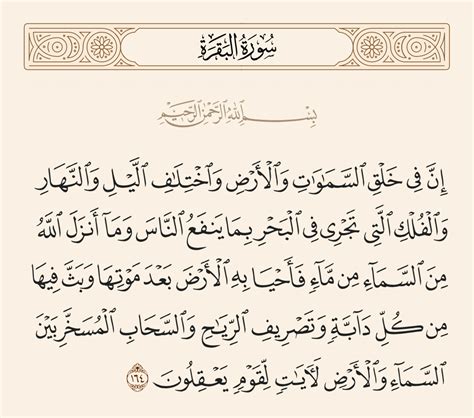 سُورَةُ البَقَرَةِ
بِسْمِ اللَّهِ الرَّحْمَٰنِ الرَّحِيمِ
إِنَّ فِي خَلْقِ ٱلسَّمَٰوَٰتِ وَٱلْأَرْضِ وَٱخْتِلَٰفِ ٱلَّيْلِ وَٱلنَّهَارِ
وَٱلْفُلْكِ ٱلَّتِي تَجْرِي فِي ٱلْبَحْرِ بِمَا يَنفَعُ ٱلنَّاسَ وَمَآ أَنزَلَ ٱللَّهُ
مِنَ ٱلسَّمَآءِ مِن مَّآءٍ فَأَحْيَا بِهِ ٱلْأَرْضَ بَعْدَ مَوْتِهَا وَبَثَّ فِيهَا
مِن كُلِّ دَآبَّةٍ وَتَصْرِيفِ ٱلرِّيَٰحِ وَٱلسَّحَابِ ٱلْمُسَخَّرِ بَيْنَ
ٱلسَّمَآءِ وَٱلْأَرْضِ لَأٓيَٰتٍ لِّقَوْمٍ يَعْقِلُونَ ١٦٤